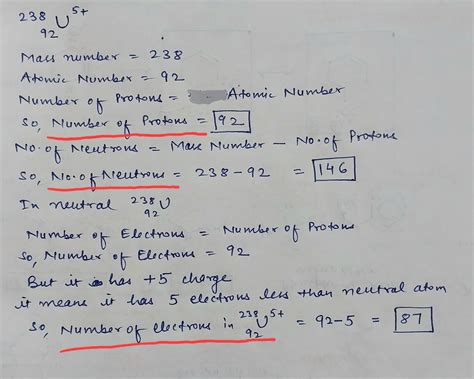 ²³⁸₉₂U⁵⁺
Mass number = 238
Atomic Number = 92
Number of Protons = Atomic Number
So, Number of Protons = 92
No. of Neutrons = Mass Number - No. of Protons
So, No. of Neutrons = 238-92 = 146
In neutral ²³⁸₉₂U
Number of Electrons = Number of Protons
So, Number of Electrons = 92
But it has +5 charge
it means it has 5 electrons less than neutral atom
So, Number of electrons in ²³⁸₉₂U⁵⁺ = 92-5 = 87